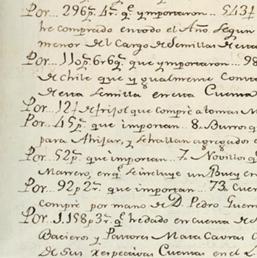 Por .. 296 p.s 4 r.s q.e ymportaron .. 543 1
he comprado en todo el Año segun
menor del Cargo de Semillas de esta
Por .. 110 p.s 6 r.s q.e ymportaron .. 98
de chile que ygualmente Consta
de esta Semilla en esta Cuenta
Por .. 12 p.s de frijol que compré a tomas M
Por .. 45 p.s que importan .. 8. Burros q
para Ahijar, y se hallan agregados a
Por .. 52 p.s que importan .. 7. Novillos q
Marrero, en q.e se incluye un Buey en
Por .. 92 p.s 2 r.s que importan .. 73 Cuer
compre por mano de D. Pedro Guerr
Por .. 1.158 p.s 3 r.s q.e he dado en cuenta de
Bacieros y Pastores Mata Cavras
de sus respectivas Cuentas en el L